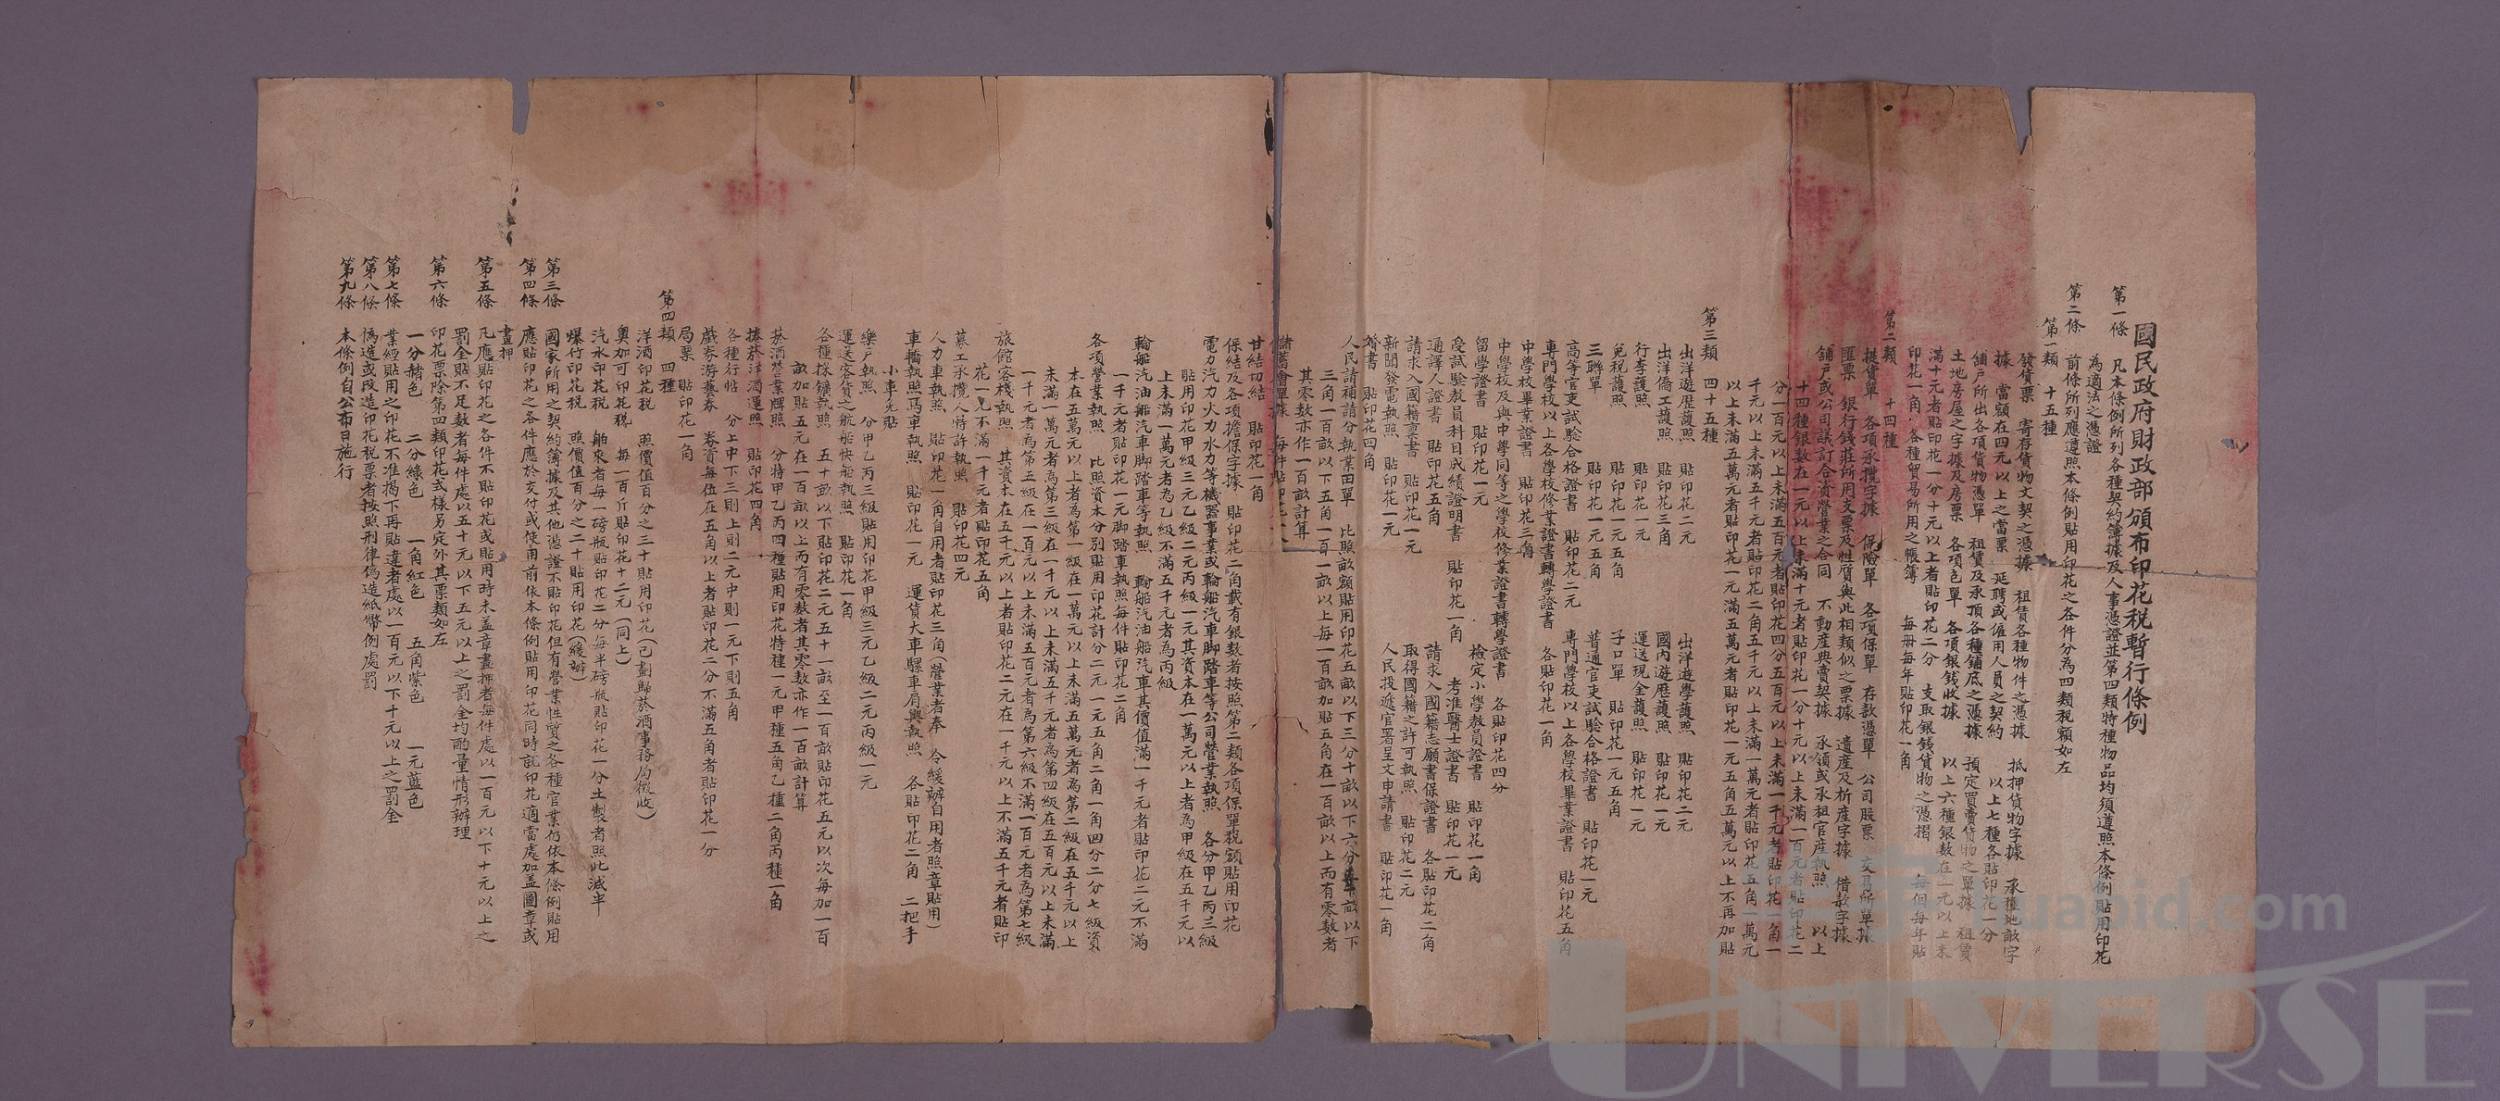 國民政府財政部頒布印花稅暫行條例
第一條　凡本條例所列各種契約簿據及人事憑證並第四類特種物品均須遵照本條例貼用印花
為適法之憑證
第二條　前條所列應遵照本條例貼用印花之各件分為四類稅額如左
第一類　十五種
發貨票　寄存貨物文契之憑據　租賃各種物件之憑據　抵押貨物字據　承種地畝字
據　當額在四元以上之當票　延聘或僱用人員之契約　以上七種各貼印花一分
舖户所出各項貨物憑單　租賃及承頂各種舖底之憑據　預定買賣貨物之單據　租賃
土地房屋之字據及房票　各項包單　各項銀錢收據　以上六種銀數在一元以上未
滿十元者貼印花一分十元以上者貼印花二分　支取銀錢貨物之憑摺　每個每年貼
印花一角　各種貿易所用之帳簿　每冊每年貼印花一角
第二類　十四種
提貨單　各項承攬字據　保險單　各項保單　存款憑單　公司股票　交易所單據
匯票　銀行錢莊所用支票及性質與此相類似之票據　遺產及析產字據　借款字據
舖户或公司議訂合資營業之合同　不動產典賣契據　承領或承租官產執照　以上
十四種銀數在一元以上未滿十元者貼印花一分十元以上未滿一百元者貼印花二
分一百元以上未滿五百元者貼印花四分五百元以上未滿一千元者貼印花一角一
千元以上未滿五千元者貼印花二角五千元以上未滿一萬元者貼印花五角一萬元
以上未滿五萬元者貼印花一元滿五萬元者貼印花一元五角五萬元以上不再加貼
第三類　四十五種
出洋遊歷護照　貼印花二元　出洋遊學護照　貼印花二元
出洋僑工護照　貼印花三角　國內遊歷護照　貼印花一元
行李護照　貼印花一元　運送現金護照　貼印花一元
免稅護照　貼印花一元五角　子口單　貼印花一元五角
三聯單　貼印花一元五角　普通官吏試驗合格證書　貼印花一元
高等官吏試驗合格證書　貼印花二元　專門學校以上各學校畢業證書　貼印花五角
專門學校以上各學校修業證書轉學證書　各貼印花一角
中學校畢業證書　貼印花三角
中學校及與中學同等之學校修業證書轉學證書　各貼印花四分
留學證書　貼印花一元　檢定小學教員證書　貼印花一角
受試驗教員科目成績證明書　貼印花一角　考准醫士證書　貼印花一元
通譯人證書　貼印花五角　請求入國籍志願書保證書　各貼印花二角
請求入國籍稟書　貼印花一元　取得國籍之許可執照　貼印花二元
新聞發電執照　貼印花一元　人民投遞官署呈文申請書　貼印花一角
婚書　貼印花四角
人民請補請分執業田單　比照畝額貼用印花五畝以下三分十畝以下六分畝以下
三角一百畝以下五角一百一畝以上每一百畝加貼五角在一百畝以上而有零數者
其零數亦作一百畝計算
儲蓄會單據　每件貼印花
甘結切結　貼印花一角
保結及各項擔保字據　貼印花二角載有銀數者按照第二類各項保單稅額貼用印花
電力汽力火力水力等機器事業或輪船汽車腳踏車等公司營業執照　各分甲乙丙三級
貼用印花甲級三元乙級二元丙級一元其資本在一萬元以上者為甲級在五千元以
上未滿一萬元者為乙級不滿五千元者為丙級
輪船汽油船汽車腳踏車等執照　輪船汽油船汽車其價值滿一千元者貼印花二元不滿
一千元者貼印花一元腳踏車執照每件貼印花二角
各項營業執照　比照資本分別貼用印花計分二元一元五角二角一角四分二分七級資
本在五萬元以上者為第一級在一萬元以上未滿五萬元者為第二級在五千元以上
未滿一萬元者為第三級在一千元以上未滿五千元者為第四級在五百元以上未滿
一千元者為第五級在一百元以上未滿五百元者為第六級不滿一百元者為第七級
旅館客棧執照　其資本在五千元以上者貼印花二元在一千元以上不滿五千元者貼印
花一元不滿一千元者貼印花五角
募工承攬人特許執照　貼印花四元
人力車執照　貼印花一角自用者貼印花三角（營業者奉令緩辦自用者照章貼用）
車轎執照馬車執照　貼印花一元　運貨大車騾車肩輿執照　各貼印花二角　二把手
小車免貼
樂户執照　分甲乙丙三級貼用印花甲級三元乙級二元丙級一元
運送客貨之航船快船執照　貼印花一角
各種採鑛執照　五十畝以下貼印花二元五十一畝至一百畝貼印花五元以次每加一百
畝加貼五元在一百畝以上而有零數者其零數亦作一百畝計算
菸酒營業牌照　分特甲乙丙四種貼用印花特種一元甲種五角乙種二角丙種一角
捲菸洋酒運照　貼印花四角
各種行帖　分上中下三則上則二元中則一元下則五角
戲券游藝券　券資每位在五角以上者貼印花二分不滿五角者貼印花一分
局票　貼印花一角
第四類　四種
洋酒印花稅　照價值百分之三十貼用印花（已劃歸菸酒事務局徵收）
奧加可印花稅　每一百斤貼印花十二元（同上）
汽水印花稅　舶來者每一磅瓶貼印花二分每半磅瓶貼印花一分土製者照此減半
爆竹印花稅　照價值百分之二十貼用印花（緩辦）
第三條　國家所用之契約簿據及其他憑證不貼印花但有營業性質之各種官業仍依本條例貼用
第四條　應貼印花之各件應於交付或使用前依本條例貼用印花同時就印花適當處加蓋圖章或
畫押
第五條　凡應貼印花之各件不貼印花或貼用時未蓋章畫押者每件處以一百元以下十元以上之
罰金貼不足數者每件處以五十元以下五元以上之罰金均酌量情形辦理
第六條　印花票除第四類印花式樣另定外其票類如左
一分赭色　二分綠色　一角紅色　五角紫色　一元藍色
第七條　業經貼用之印花不准揭下再貼違者處以一百元以下十元以上之罰金
第八條　偽造或改造印花稅票者按照刑律偽造紙幣例處罰
第九條　本條例自公布日施行
UNIVERSE